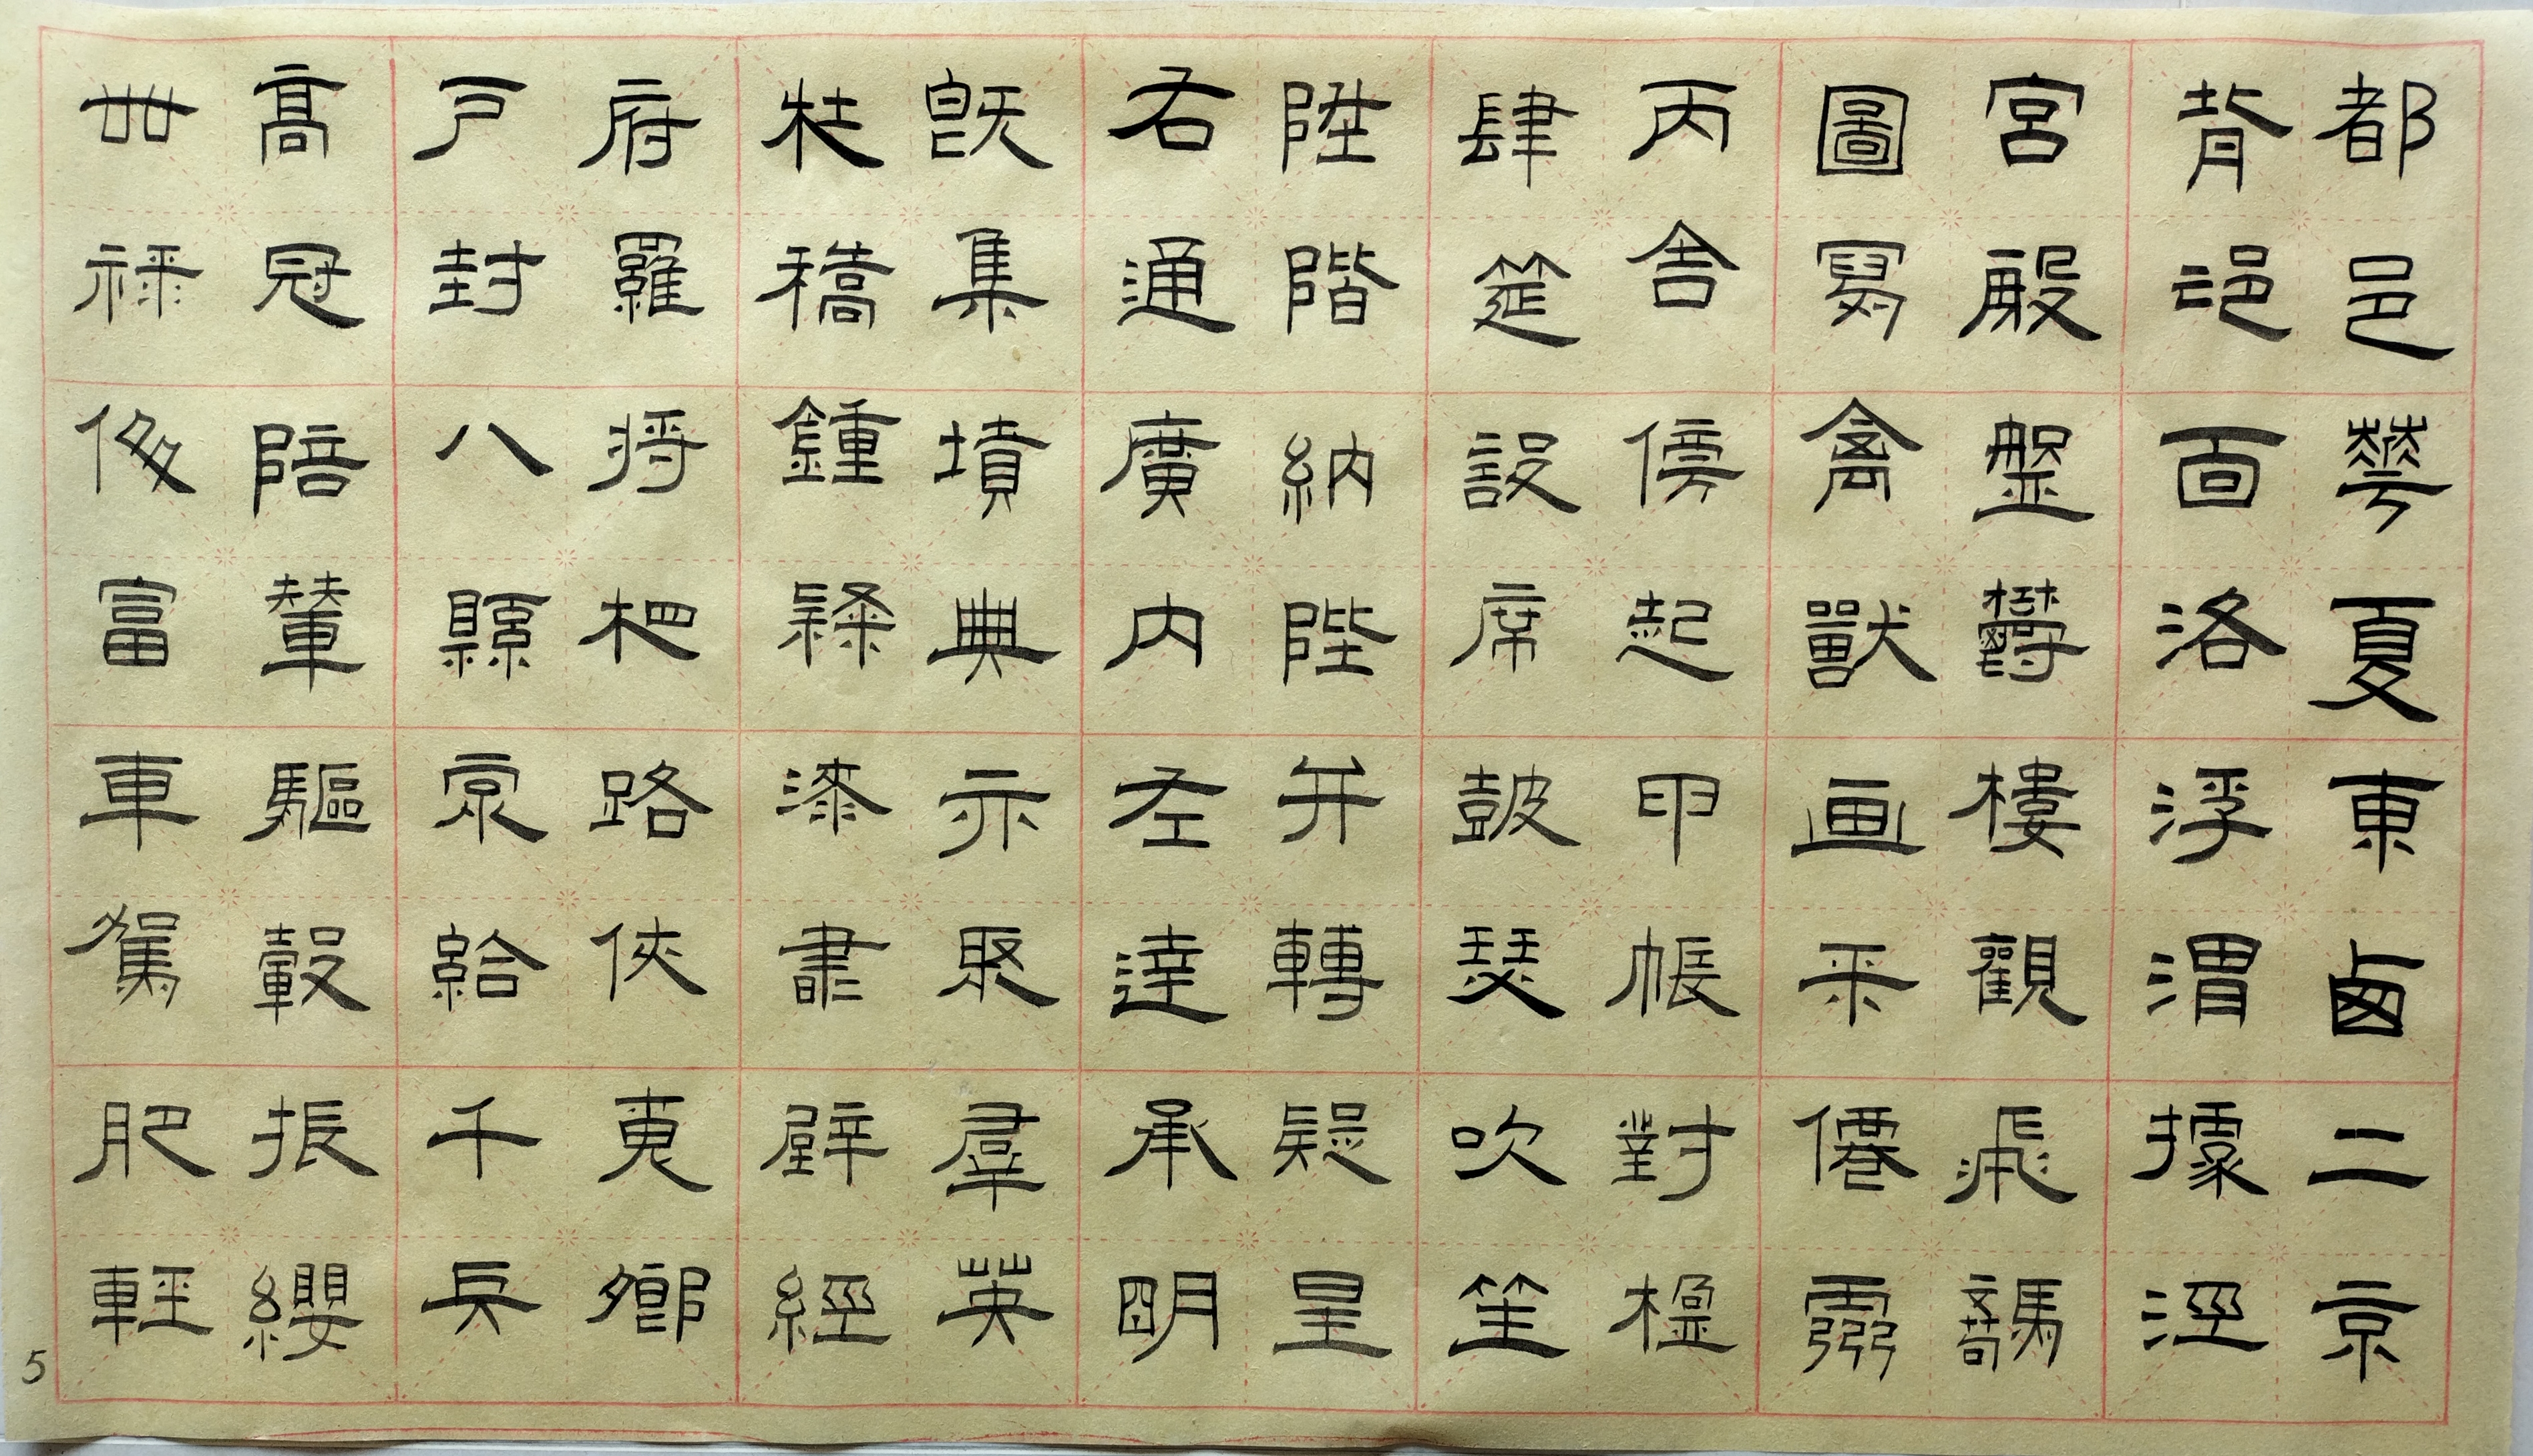 都邑華夏東鹵二京
背邙面洛浮渭據涇
宮殿盤鬱樓觀飛驚
圖寫禽獸画采僊靈
丙舍傍起甲帳對楹
肆筵設席鼓瑟吹笙
陞階納陛弁轉疑星
右通廣內左達承明
既集墳典亦聚羣英
杜稿鍾隸漆書壁經
府羅將相路俠槐卿
戶封八縣家給千兵
高冠陪輦驅轂振纓
世祿侈富車駕肥輕
5